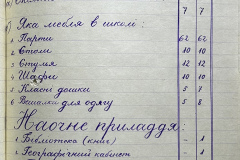 7 7
5) Яка мебля в школі:
1 Парти 62 62
2 Столи 10 10
3 Стулля 12 12
4 Шафи 10 10
5 Класні дошки 5 7
6 Вішалки для одягу 5 8
Наочне приладдя:
1 Бібліотека (книг) - 1
2 Географічний кабінет - 1